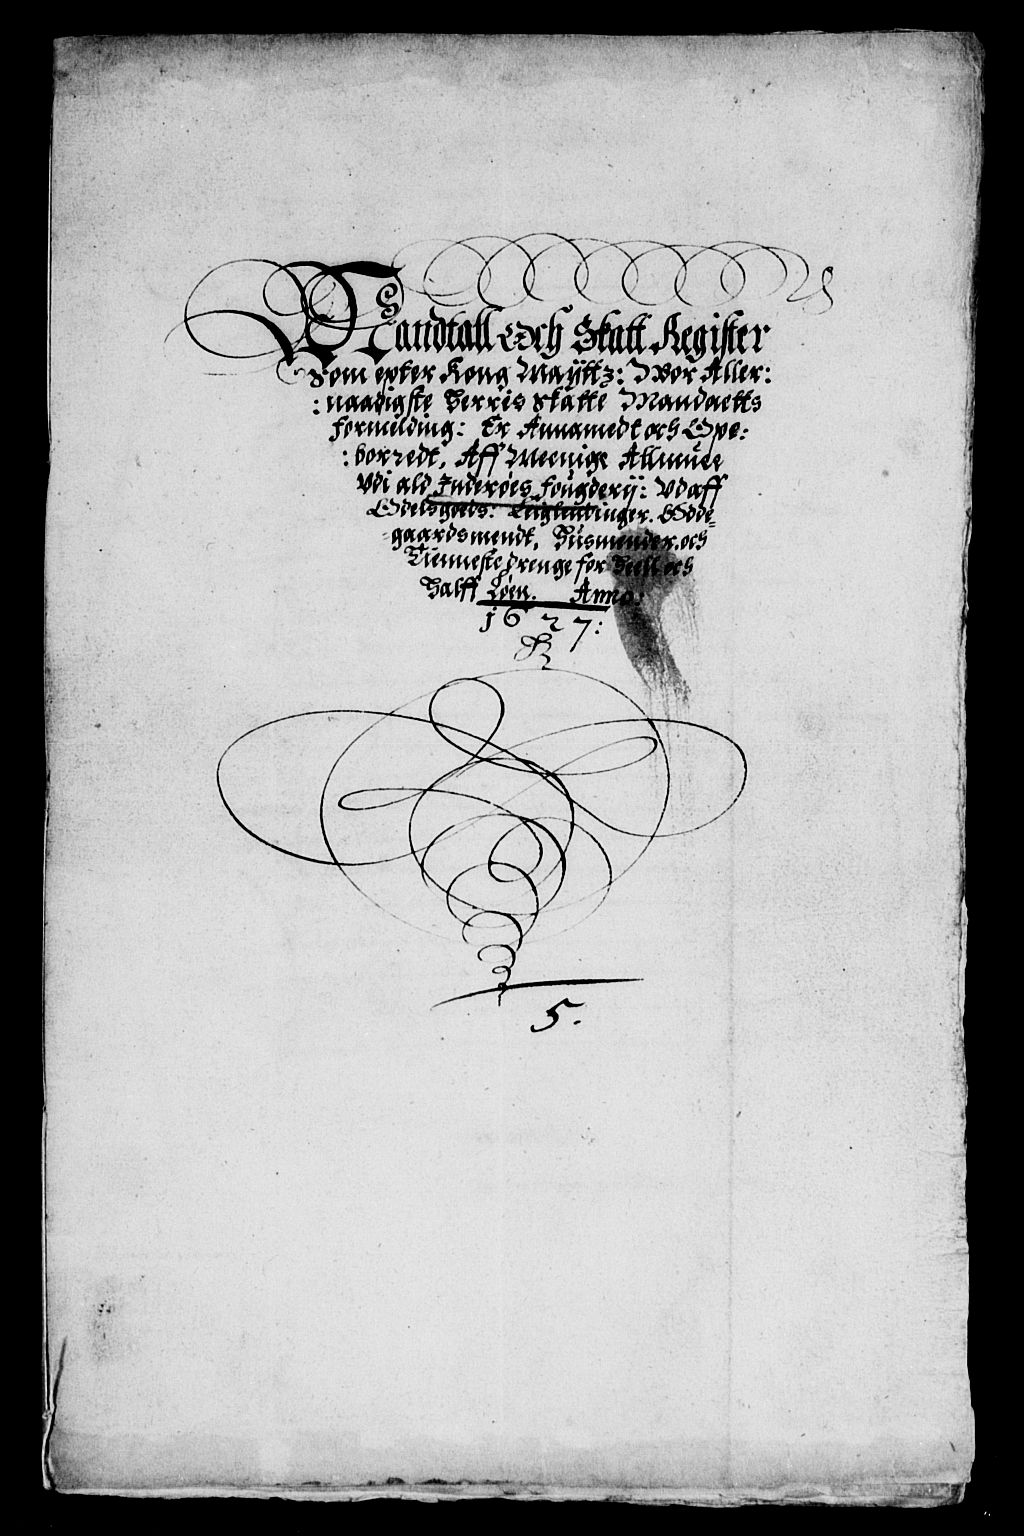 Mandtall Och Skatt Register
Som epter Kong Maÿttz: Wor Aller:
:naadigste Herris Skatte Mandaetts
formelding: Er Annamedt och Ope:
:borredt, Aff Meenige Allmue
Vdi ald Inderøes fougderij: Vdaff
Odelsgods: Leiglendinger. Ødde-
-gaardsmendt, Husmender. och
Tienneste drenge for Heell och
Halff Løen. Anno:
1627:
5.